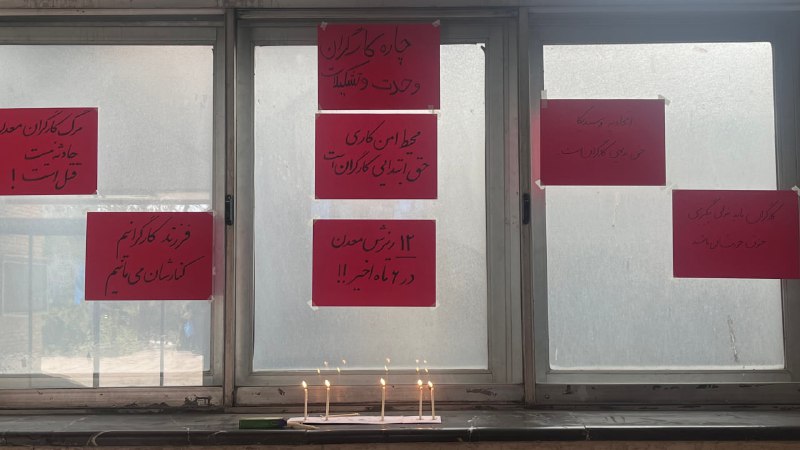 مرگ کارگران معدن
حادثه نیست
قتل است!
فرزند کارگرانیم
کنارشان می‌مانیم
چاره کارگران
وحدت و تشکیلات
محیط امن کاری
حق ابتدایی کارگران است
۱۲ ریزش معدن
در ۶ ماه اخیر!!
حق کارگران است
کارگران باید